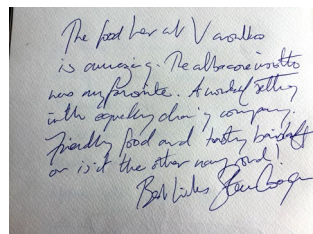 The food here at Varoulko
is amazing. The albacore risotto
was my favourite. A wonderful setting
with equally charming company.
Friendly food and tasty
or is it the other way round!
Best wishes Steve Coogan